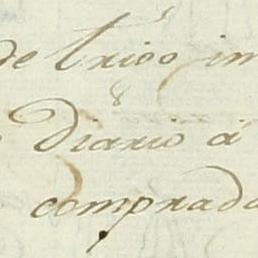 de trigo im
Diario á
comprada